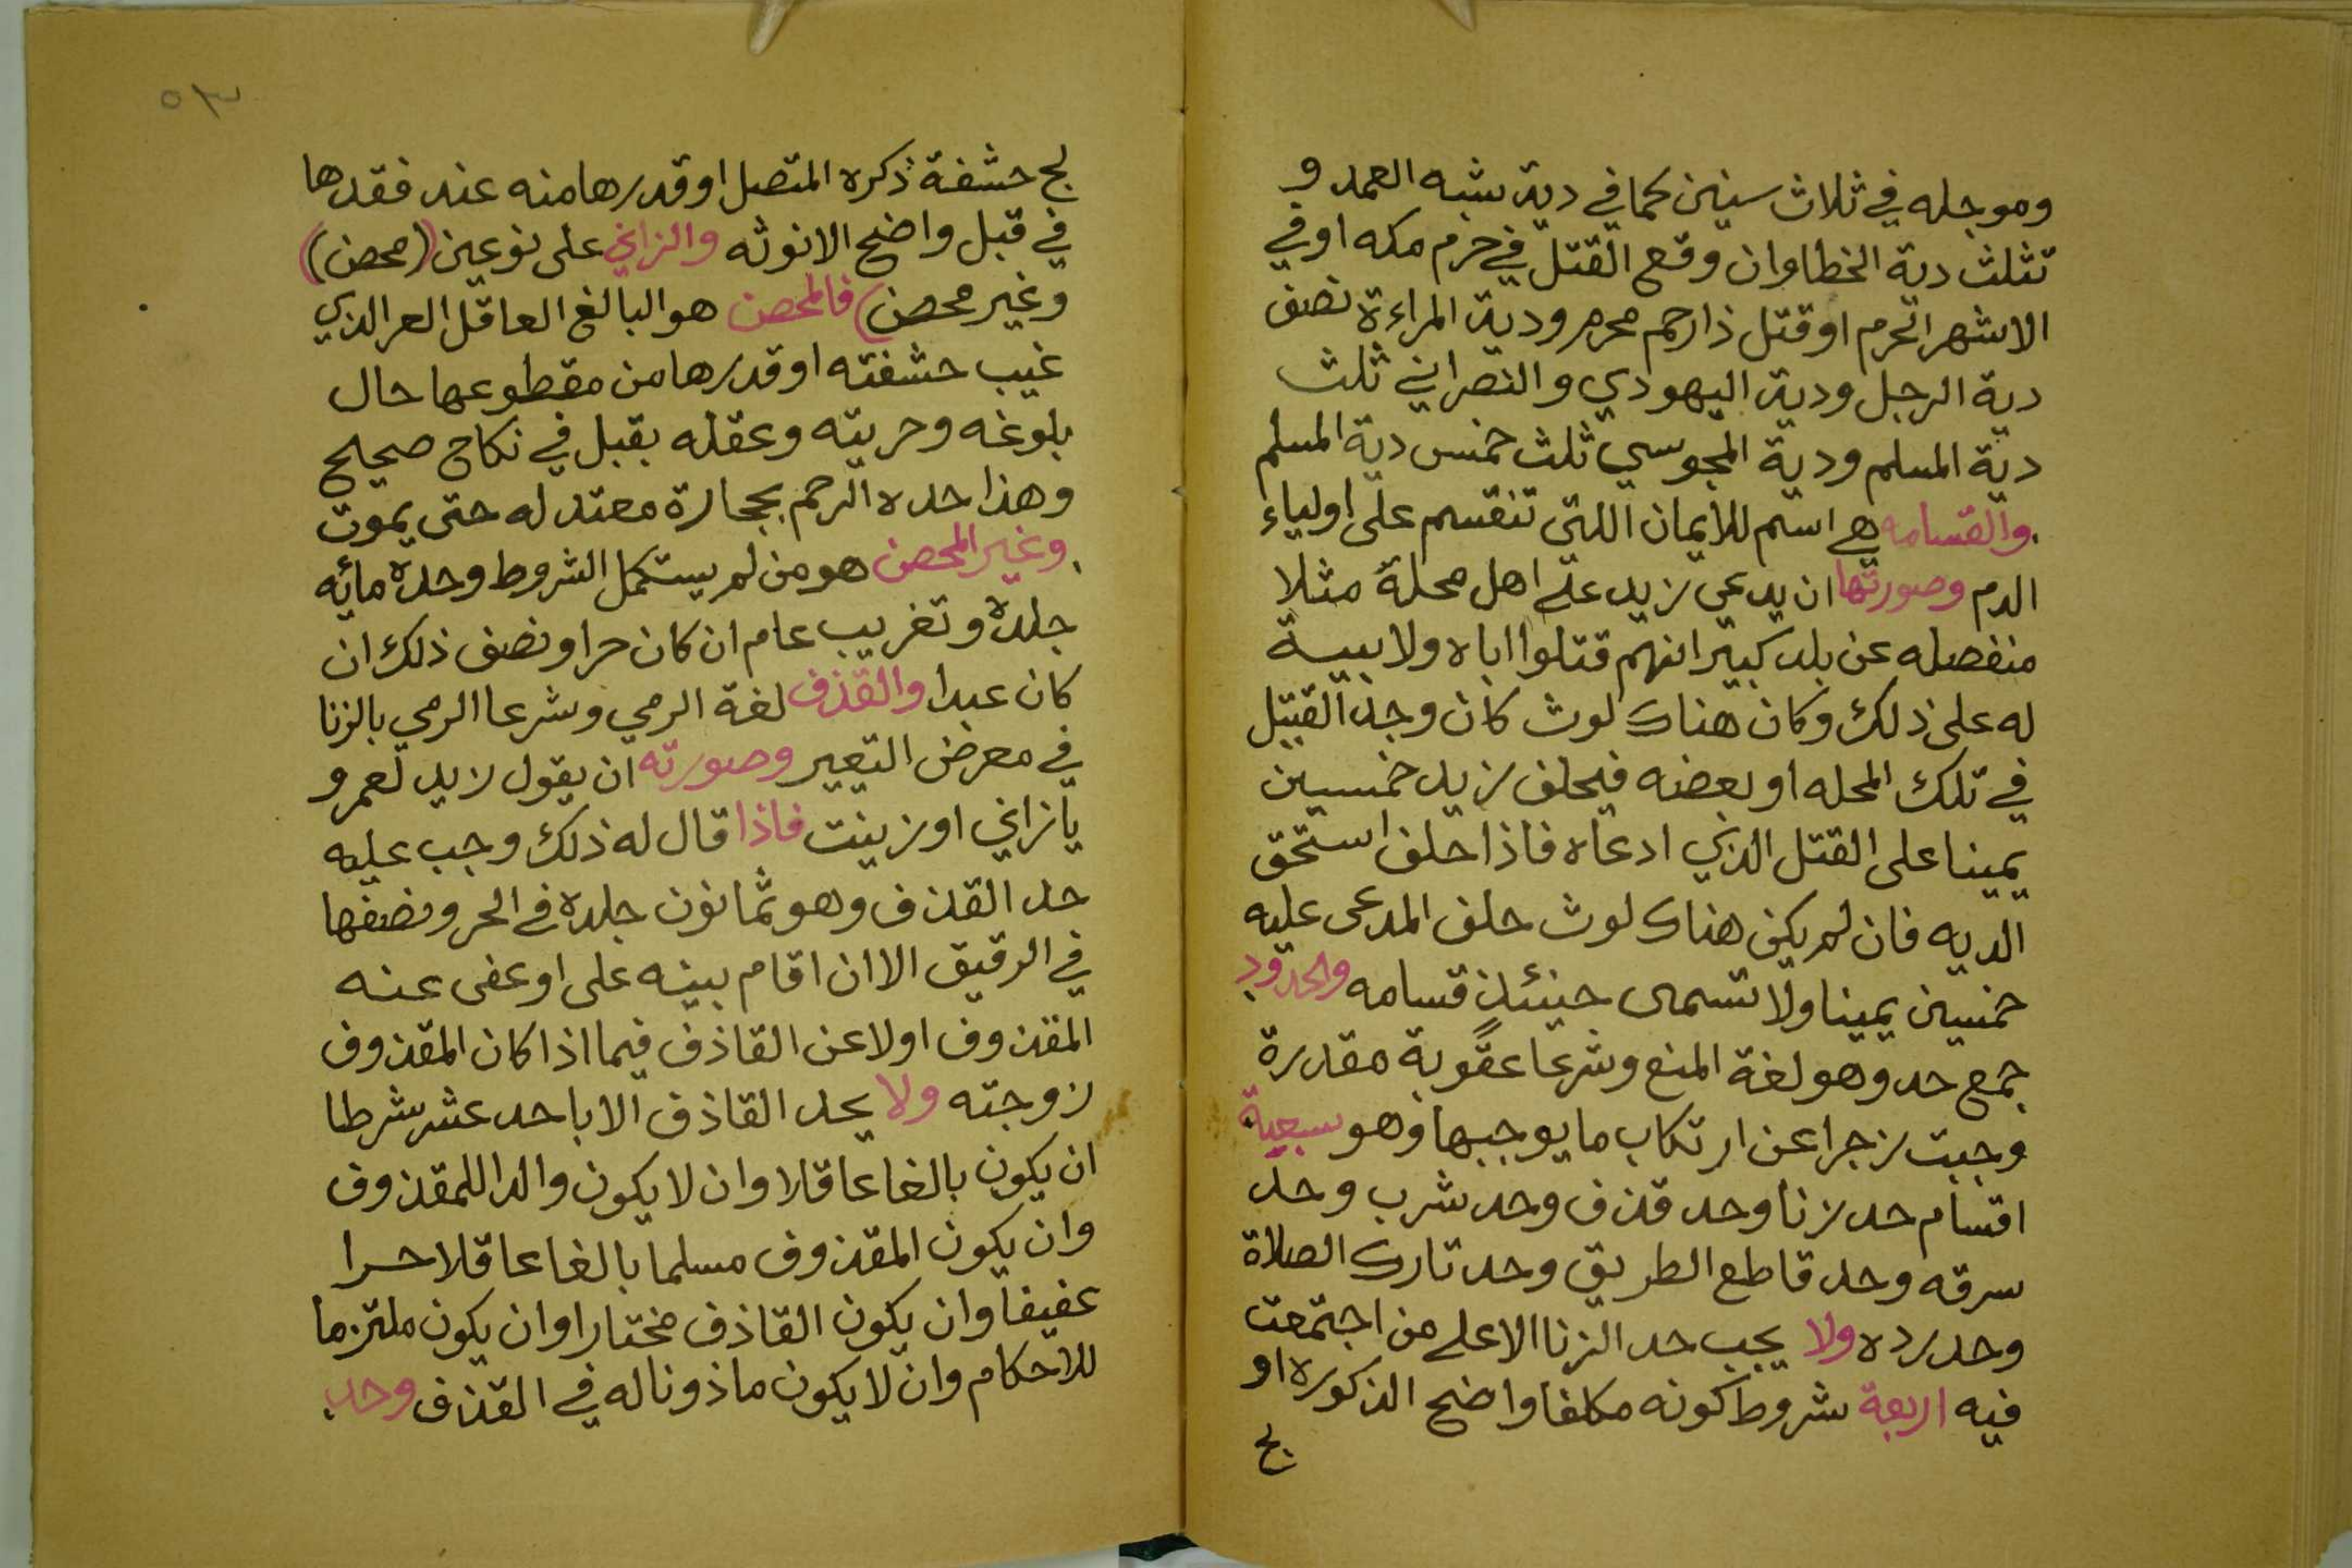 وموجله في ثلاث سنين كما في دية شبه العمد و
تثلث دية الخطا وان وقع القتل في حرم مكه او في
الاشهر الحرم او قتل ذا رحم محرم ودية المراءة نصف
دية الرجل ودية اليهودي والنصراني ثلث
دية المسلم ودية المجوسي ثلث خمس دية المسلم
والقسامه هي اسم للايمان اللتى تنقسم على اولياء
الدم وصورتها ان يدعي زيد على اهل محلة مثلا
منفصله عن بلد كبير انهم قتلوا اباه ولا بيبة
له على ذلك وكان هناك لوث كان وجد القتيل
في تلك المحله او بعضه فيحلف زيد خمسين
يمينا على القتل الذي ادعاه فاذا حلف استحق
الديه فان لم يكن هناك لوث حلف المدعى عليه
خمسين يمينا ولا تسمى حينئذ قسامه والحدود
جمع حد وهو لغة المنع وشرعا عقوبة مقدرة
وجبت زجرا عن ارتكاب ما يوجبها وهو سبعة
اقسام حد زنا وحد قذف وحد شرب وحد
سرقه وحد قاطع الطريق وحد تارك الصلاة
وحد رده ولا يجب حد الزنا الا على من اجتمعت
فيه اربعة شروط كونه مكلفا واضح الذكوره او
لج
٥٣
لج حشفة ذكره المتصل او قدرها منه عند فقدها
في قبل واضح الانوثه والزاني على نوعين (محصن)
وغير محصن) فالمحصن هو البالغ العاقل الحر الذي
غيب حشفته او قدرها من مقطوعها حال
بلوغه وحريته وعقله بقبل في نكاح صحيح
وهذا حده الرجم بحجارة معتدله حتى يموت
وغير المحصن هو من لم يستكمل الشروط وحده مائه
جلدة وتغريب عام ان كان حرا ونصف ذلك ان
كان عبدا والقذف لغة الرمي وشرعا الرمي بالزنا
في معرض التعيير وصورته ان يقول زيد لعمرو
يا زاني او زينت فاذا قال له ذلك وجب عليه
حد القذف وهو ثمانون جلده في الحر ونصفها
في الرقيق الا ان اقام بينه على او عفى عنه
المقذوف اولا عن القاذف فيما اذا كان المقذوف
زوجته ولا يحد القاذف الا باحد عشر شرطا
ان يكون بالغا عاقلا وان لا يكون والدا للمقذوف
وان يكون المقذوف مسلما بالغا عاقلا حرا
عفيفا وان يكون القاذف مختارا وان يكون ملتزما
للاحكام وان لا يكون ماذونا له في القذف وحد